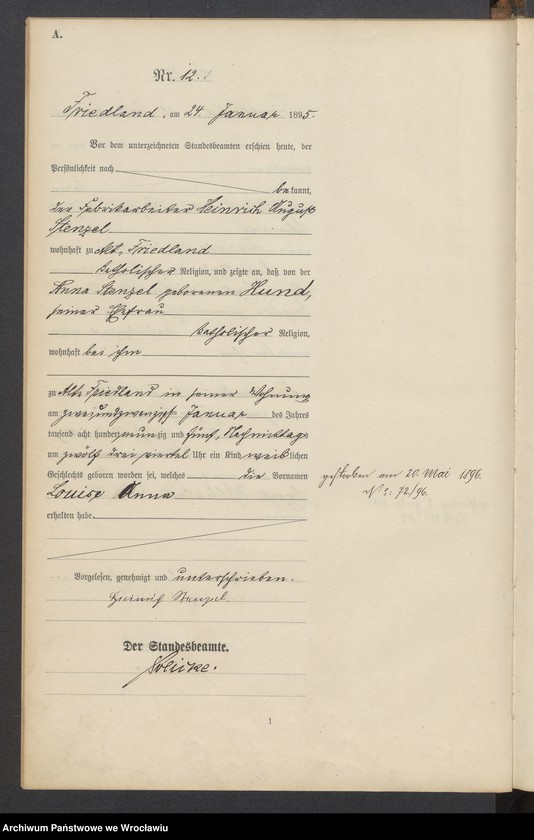 A.
Nr. 12.
Friedland, am 24. Januar 1895.
Vor dem unterzeichneten Standesbeamten erschien heute, der
Persönlichkeit nach
bekannt,
der Fabrikarbeiter Heinrich August
Stenzel
wohnhaft zu Alt-Friedland
katholischer Religion, und zeigte an, daß von der
Anna Stenzel geborenen Hund,
seiner Ehefrau
katholischer Religion,
wohnhaft bei ihm
zu Alt-Friedland in seiner Wohnung
am zweiundzwanzigsten Januar des Jahres
tausend acht hundert neunzig und fünf, Nachmittags
um zwölf drei viertel Uhr ein Kind weiblichen
Geschlechts geboren worden sei, welches die Vornamen
Louise Anna
erhalten habe.
gestorben am 20. Mai 1896.
No. 72/96.
Vorgelesen, genehmigt und unterschrieben.
Heinrich Stenzel.
Der Standesbeamte.
1
Archiwum Państwowe we Wrocławiu